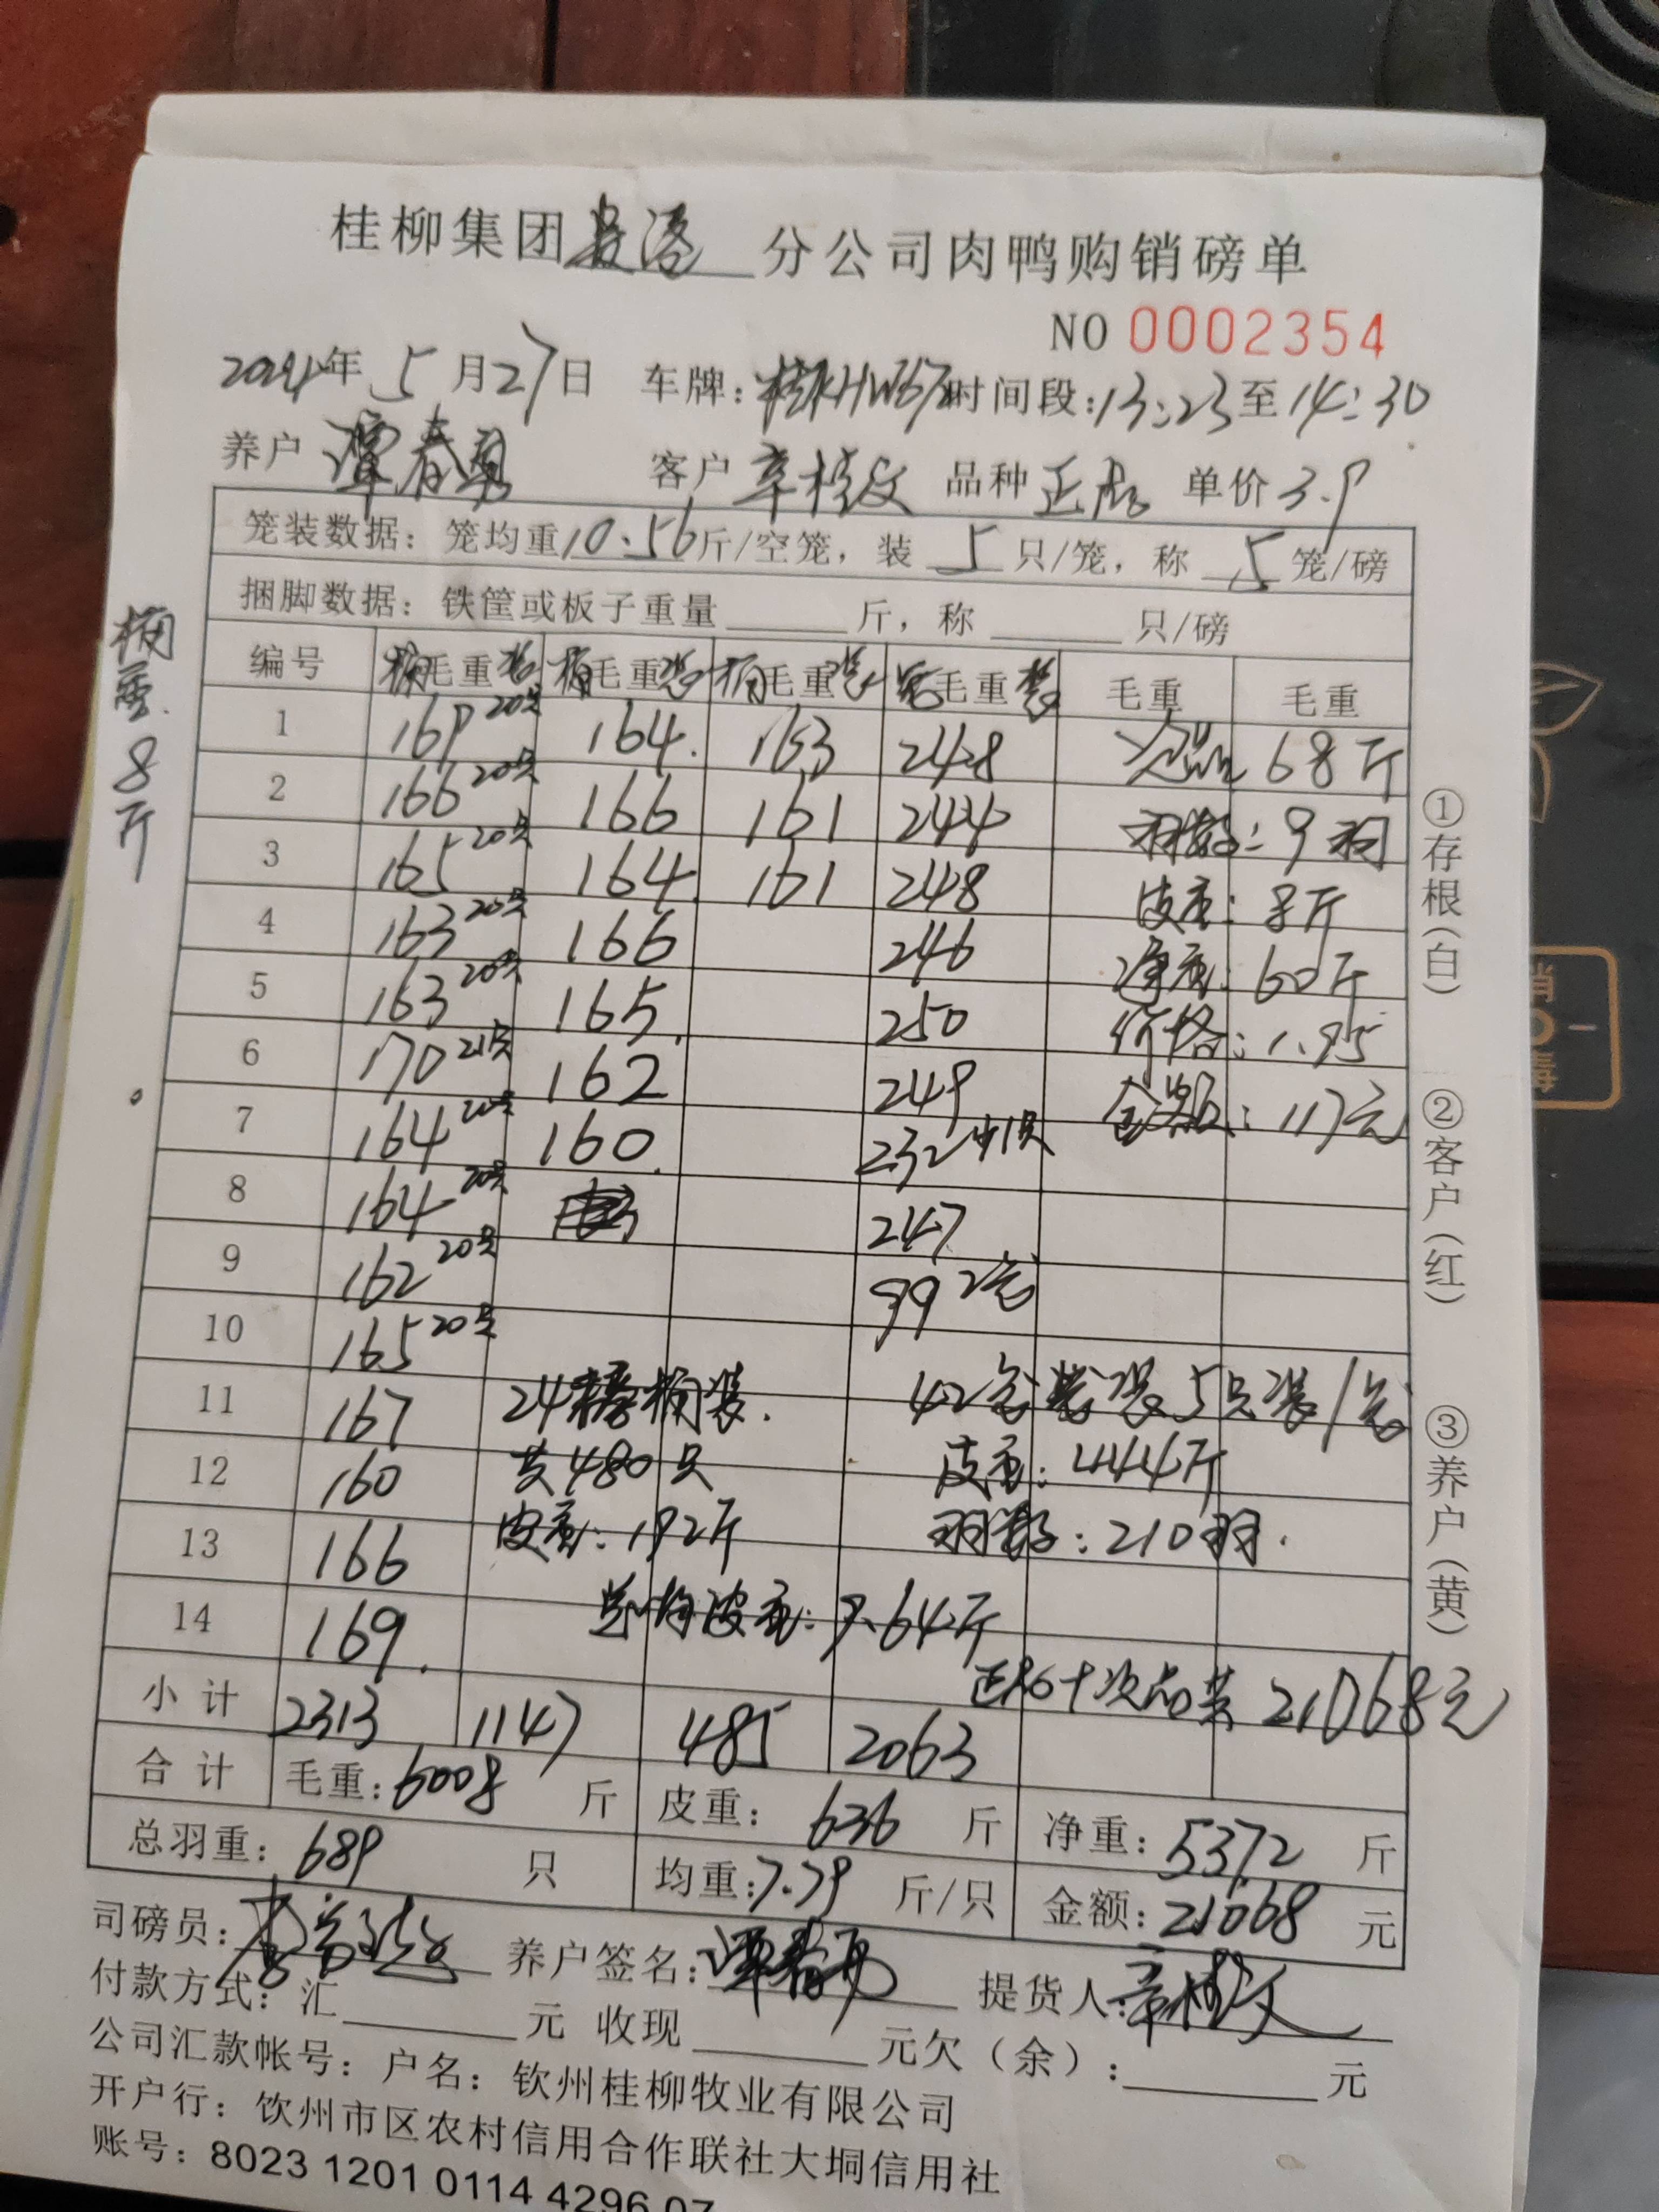 桂柳集团 分公司肉鸭购销磅单
NO 0002354
年 5 月 27 日 车牌: 时间段:13:23至14:30
养户 谭春勇 客户 章桂文 品种 正品 单价 3.9
笼装数据: 笼均重10.56斤/空笼,装 5 只/笼,称 5 笼/磅
捆脚数据: 铁筐或板子重量 斤,称 只/磅
桶重 8斤
编号 桶毛重装 桶毛重装 桶毛重装 笼毛重装 毛重 毛重
1 169 20只 164 163 248 次品 68斤
2 166 20只 166 161 244 羽数: 9羽
3 165 20只 164 161 248 皮重: 8斤
4 163 20只 166 246 净重: 60斤
5 163 20只 165 250 价格: 1.95
6 170 21只 162 249 金额: 117元
7 164 20只 160 232
8 164 20只 247
9 162 20只 99 2笼
10 165 20只
11 167 24 桶装. 42笼 装5只装/笼
12 160 共480只 皮重: 444斤
13 166 皮重: 192斤 羽数: 210羽.
14 169 均皮重: 9.64斤
正品+次品共 21068元
小计 2313 1147 485 2063
合计 毛重: 6008 斤 皮重: 636 斤 净重: 5372 斤
总羽重: 689 只 均重: 7.79 斤/只 金额: 21068 元
①存根(白)
②客户(红)
③养户(黄)
司磅员: 养户签名: 谭春勇 提货人: 章桂文
付款方式: 汇 元 收现 元欠(余): 元
公司汇款帐号: 户名: 钦州桂柳牧业有限公司
开户行: 饮州市区农村信用合作联社大垌信用社
账号: 8023 1201 0114 4296 07